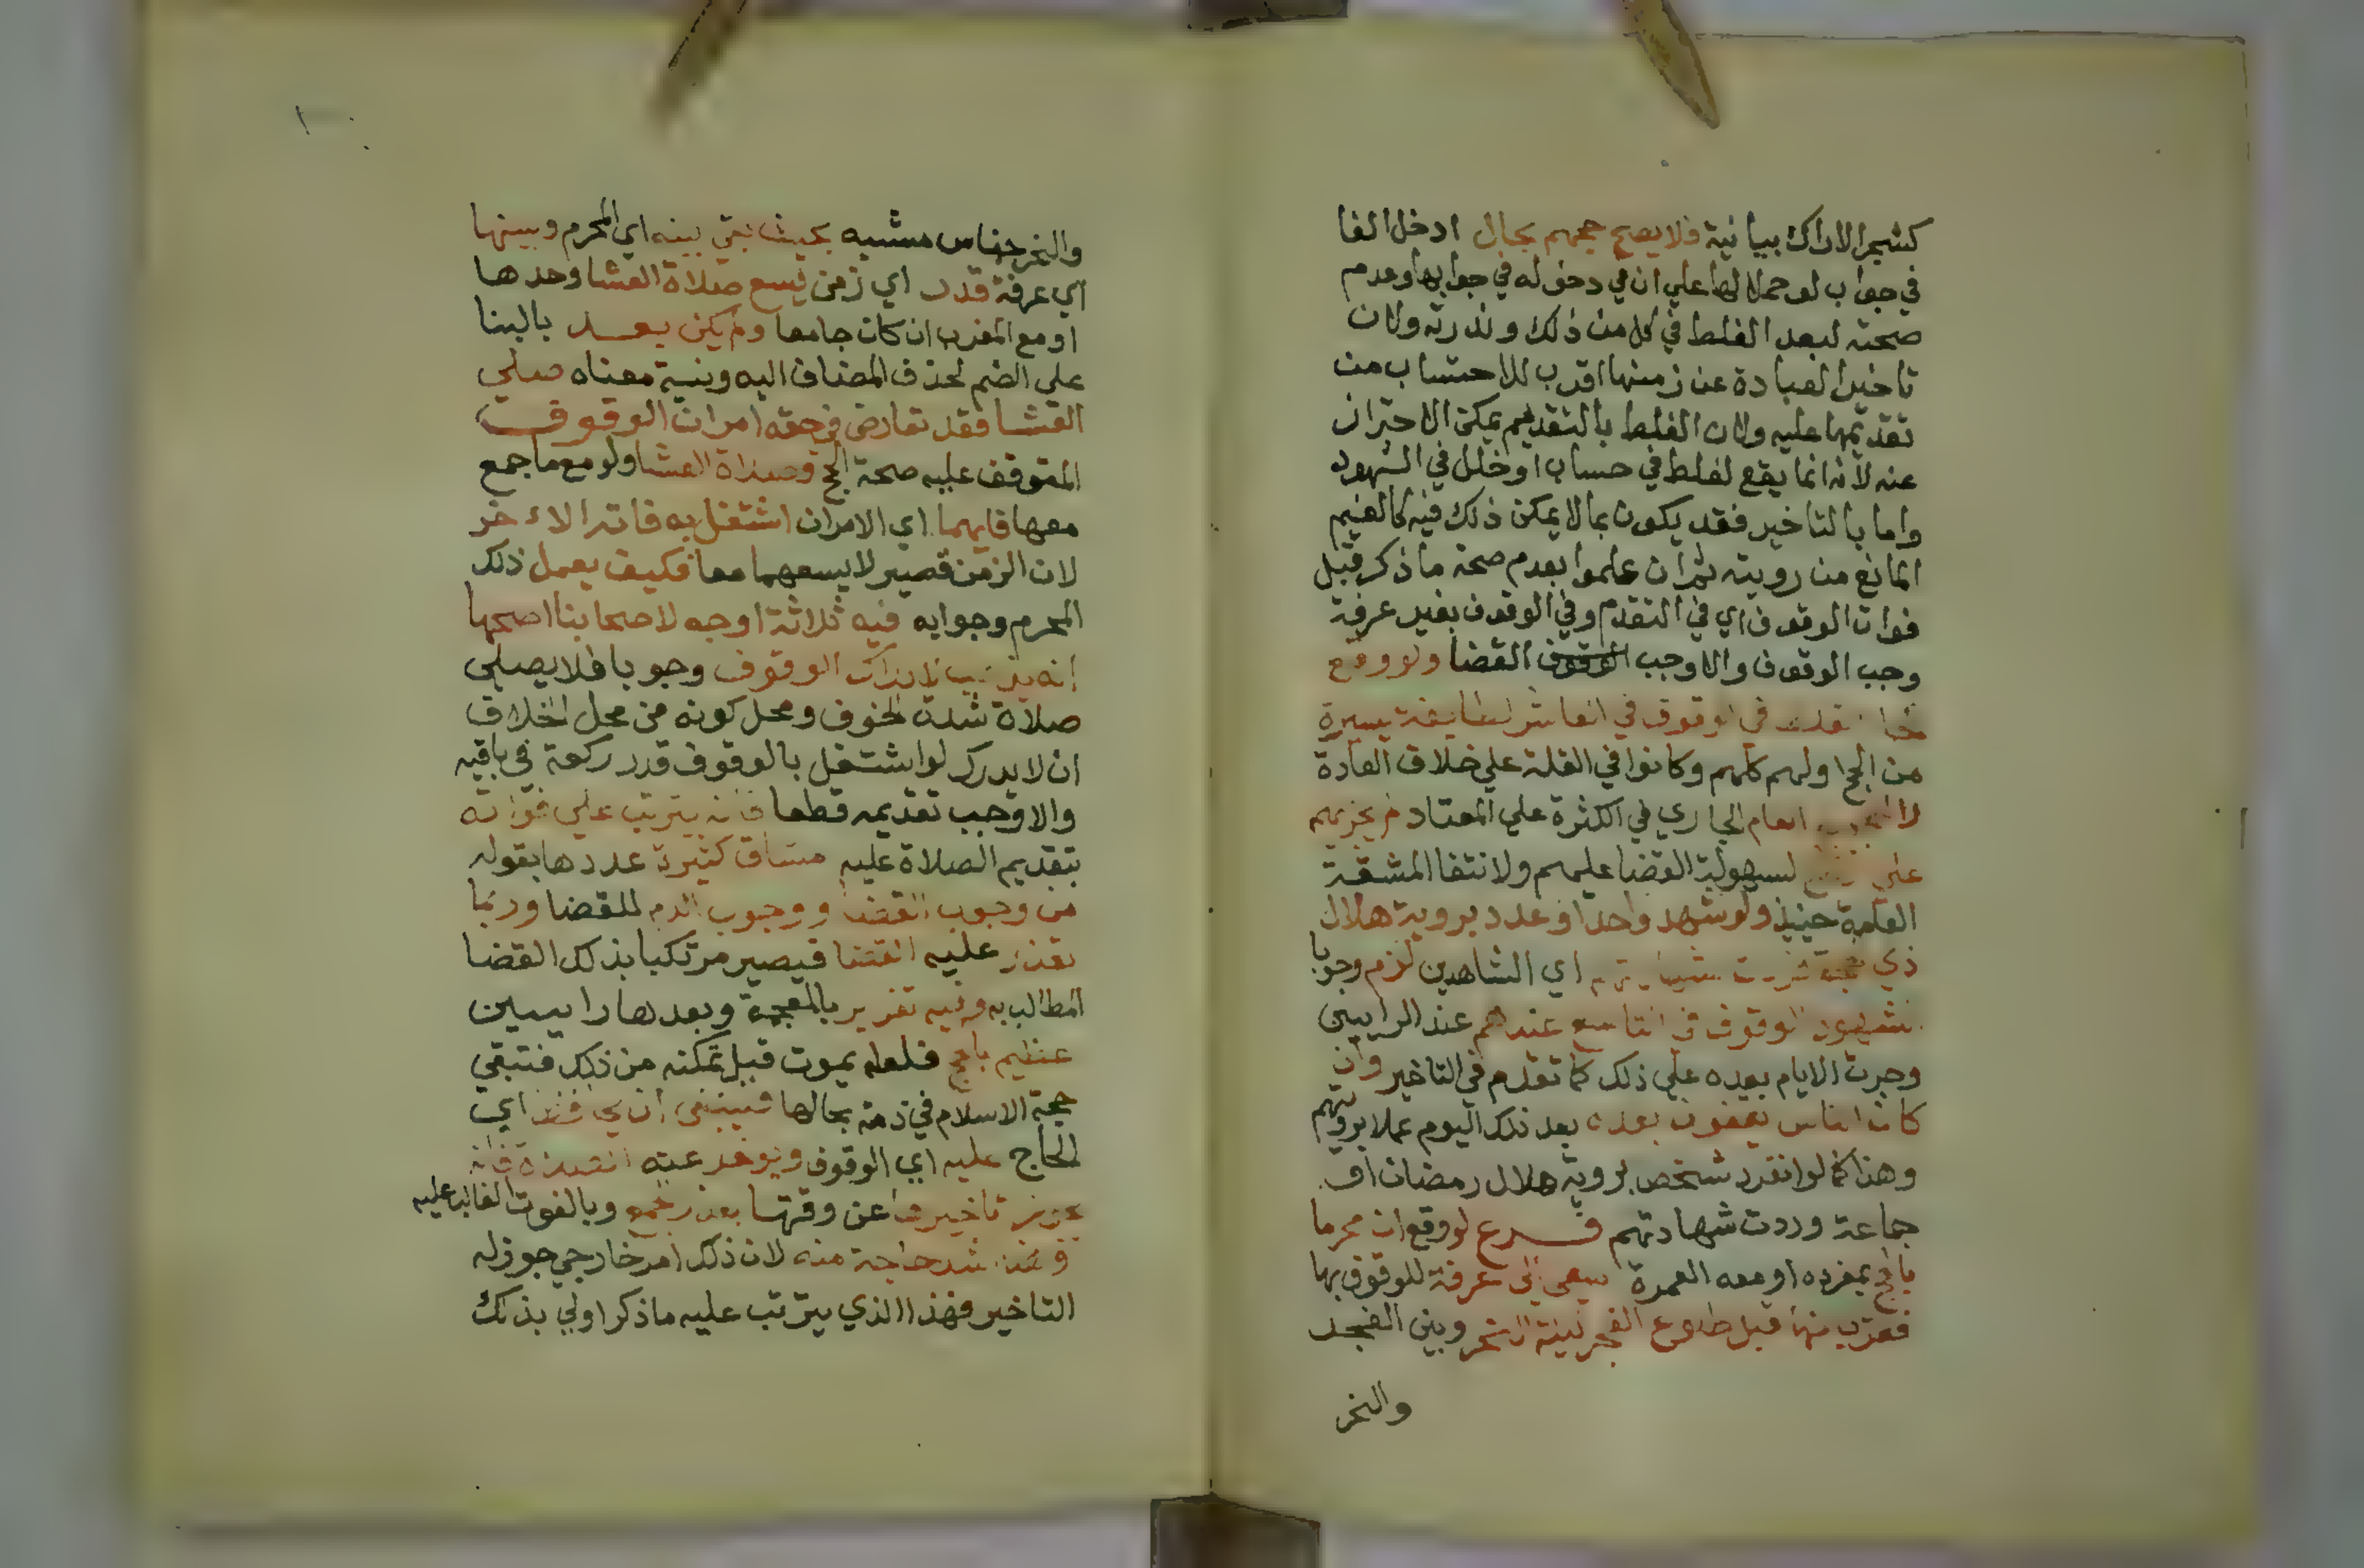 كشجر الاراك بيانية فلا يصح حجهم بحال ادخل الفا
في جواب لو حملا لها علي ان في دخوله في جوابها وعدم
صحته لبعد الغلط في كل من ذلك وندرته ولان
تاخير العبادة عن زمنها اقرب للاحتساب من
تقديمها عليه ولان الغلط بالتقديم يمكن الاحتراز
عنه لانه انما يقع لغلط في حساب او خلل في الشهود
واما بالتاخير فقد يكون بما لا يمكن ذلك فيه كالغيم
المانع من رويته ثم ان علموا بعدم صحة ما ذكر قبل
فوات الوقوف اي في التقدم وفي الوقوف بغير عرفة
وجب الوقوف والا وجب الوقوف القضا ولو وقع
في الوقوف في العاشر لطايفة يسيرة
من الحجا ولهم كلهم وكانوا في القلة علي خلاف العادة
العام الجاري في الكثرة علي المعتاد لم يجزيهم
علي لسهولة القضا عليهم ولانتفا المشقة
العامة حينيذ ولو شهد واحد او عدد بروية هلال
ذي اي الشاهدين لزم وجوبا
الوقوف في التاسع عندهم عند الراييين
وجرت الايام بعده علي ذلك كما تقدم في التاخير وان
كان الناس يقفون بعده بعد ذلك اليوم عملا برويتهم
وهذا كما لو انفرد شخص بروية هلال رمضان او
جماعة وردت شهادتهم فرع لو وقع ان محرما
بالحج بمفرده او معه العمرة سعي الي عرفة للوقوف بها
فقرب منها قبل طلوع الفجر ليلة النحر وبين الفجر
والنحر
والنحر جناس مشبه بحيث بقي بينه اي المحرم وبينها
اي عرفة قدر اي زمن يسع صلاة العشا وحدها
او مع المغرب ان كان جامعا ولم يكن بعد بالبنا
علي الضم لحذف المضاف اليه ونية معناه صلي
العشا فقد تعارض في حقه امران الوقوف
المتوقف عليه صحة الحج وصلاة العشا ولو مع ما جمع
معها فايهما اي الامران اشتغل به فاته الاخر
لان الزمن قصير لا يسعهما معا فكيف يعمل ذلك
المحرم وجوابه فيه ثلاثة اوجه لاصحابنا اصحها
انه يذهب لادراك الوقوف وجوبا فلا يصلي
صلاة شدة الخوف ومحل كونه من محل الخلاف
ان لا يدرك لو اشتغل بالوقوف قدر ركعة في باقيه
والا وجب تقديمه قطعا فانه يترتب علي فواته
بتقديم الصلاة عليه مشاق كثيرة عددها بقوله
من وجوب القضا ووجوب الدم للقضا وربما
تعذر عليه القضا فيصير مرتكبا بذلك القضا
المطالب به وفيه تغرير بالمعجمة وبعدها رايين
عظيم بالحج فلعله يموت قبل تمكنه من ذلك فتبقي
حجة الاسلام في ذمته بحالها فينبغي ان يحافظ اي
الحاج عليه اي الوقوف ويوخر عنه الصلاة فانه
يجوز تاخيرها عن وقتها بعذر الجمع وبالفوت الغالب عليه
وهذا اشد حاجة منه لان ذلك امر خارجي جوز له
التاخير فهذا الذي يترتب عليه ما ذكر اولي بذلك